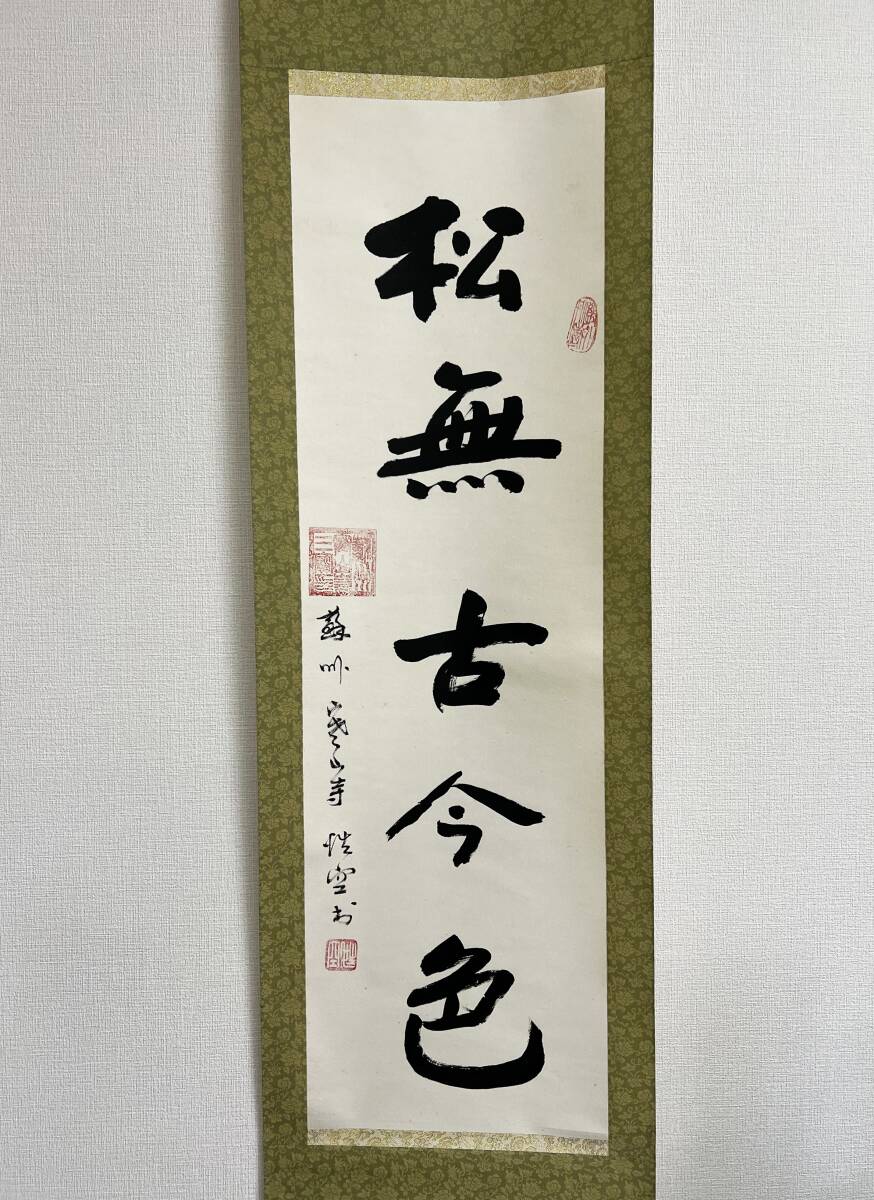 松無古今色
蘇州寒山寺 性空书